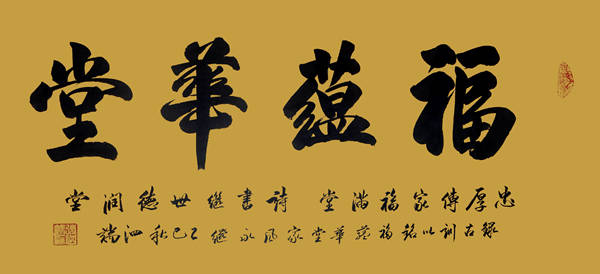 福蘊華堂
忠厚傳家福滿堂 詩書繼世德潤堂
錄古訓以銘福蘊華堂家風永繼 乙巳秋 泗端